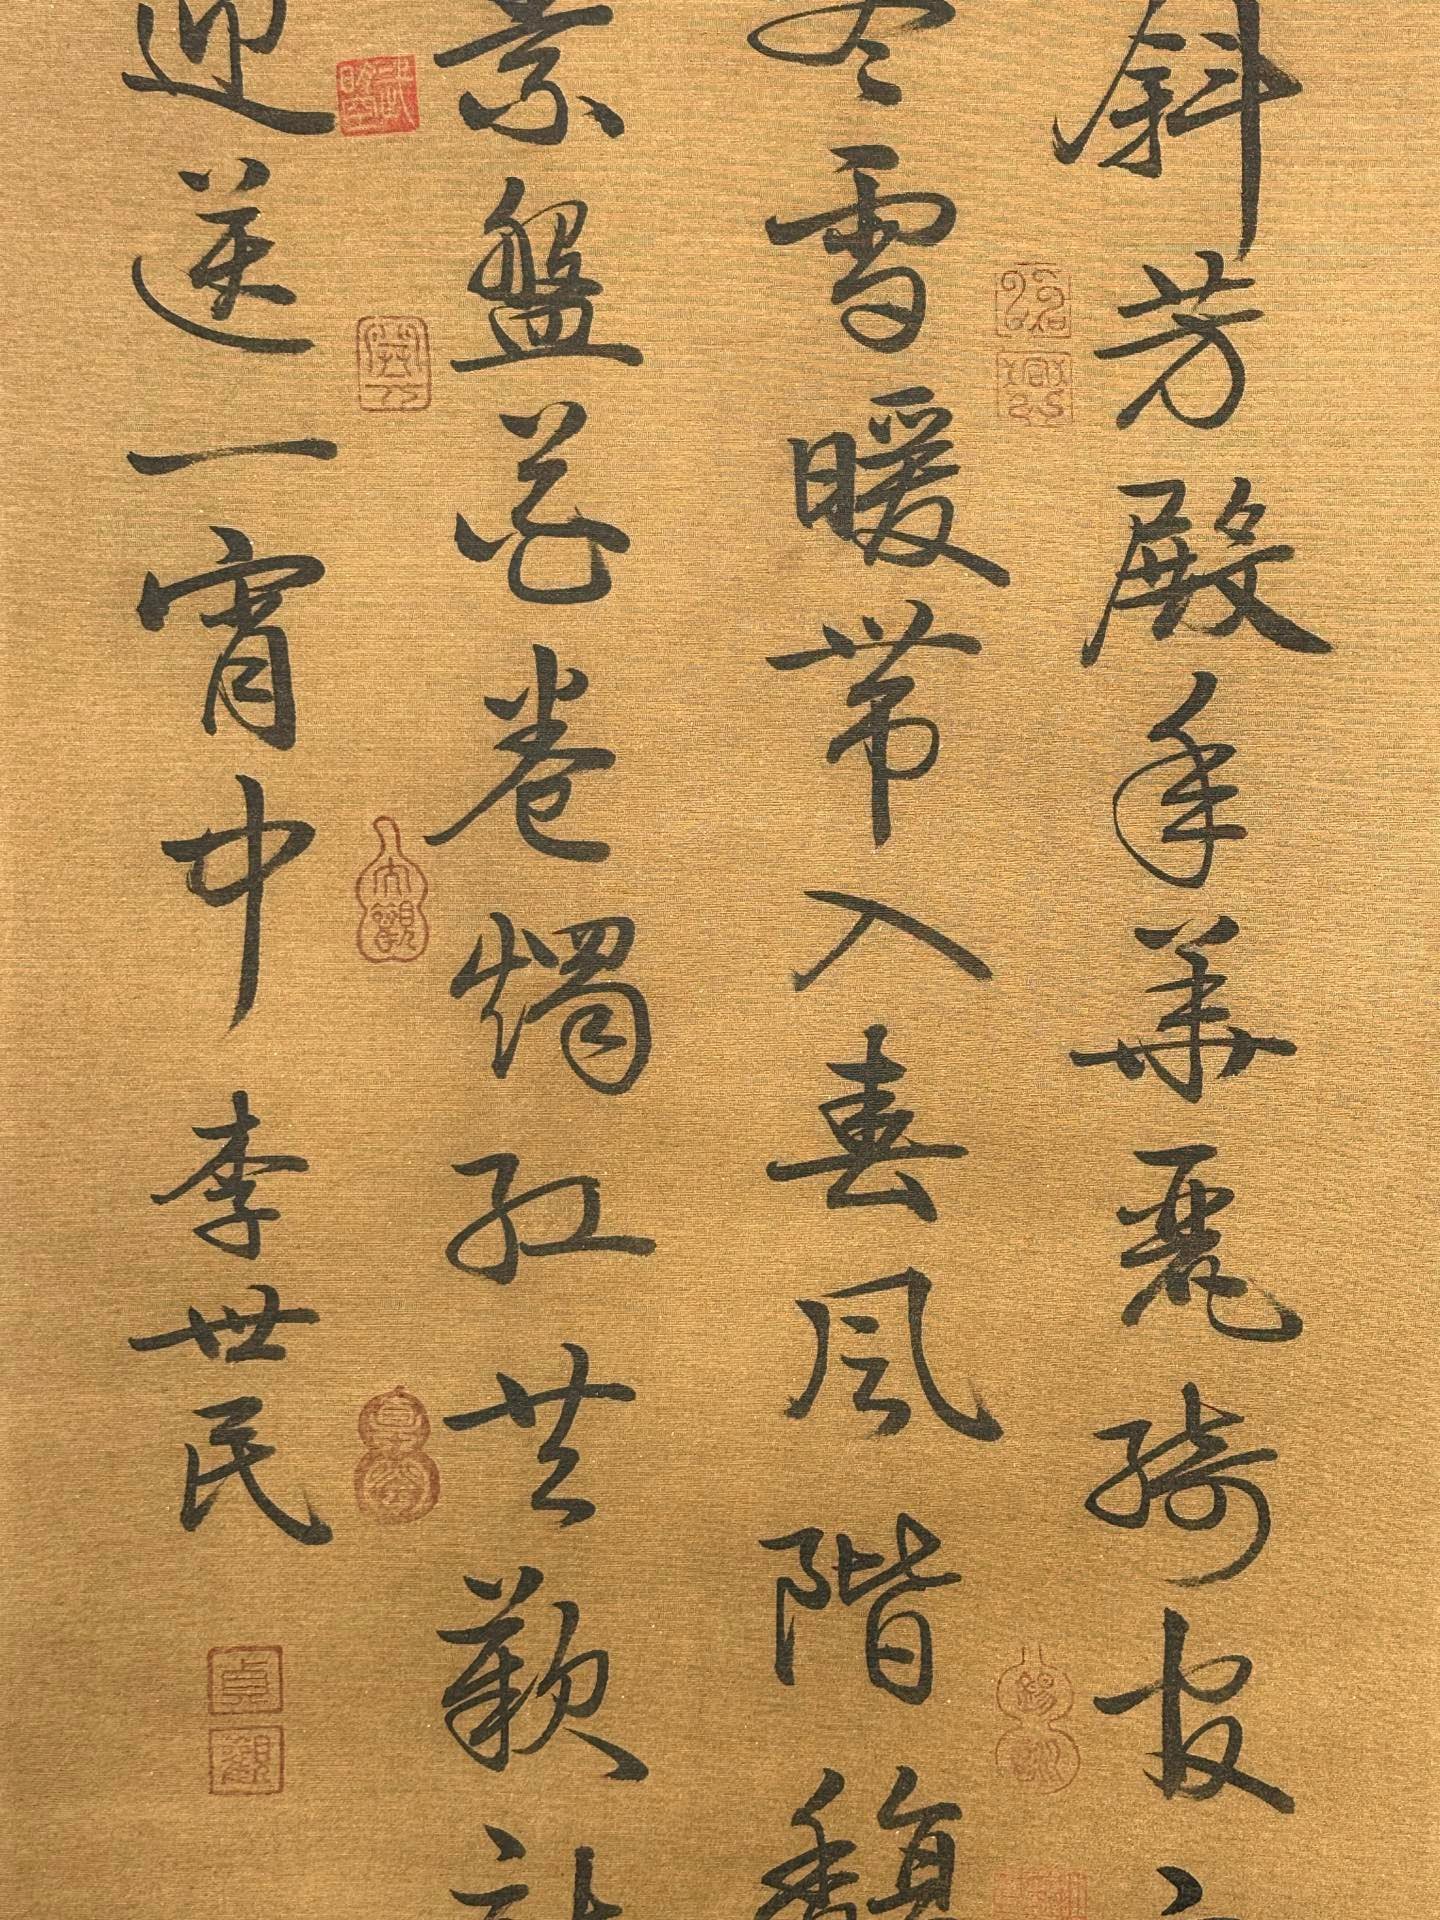 斜芳殿年華麗綺宮
冬雪暖帶入春風階馥
素盤花卷燭紅共歡
迎送一宵中
李世民
貞觀